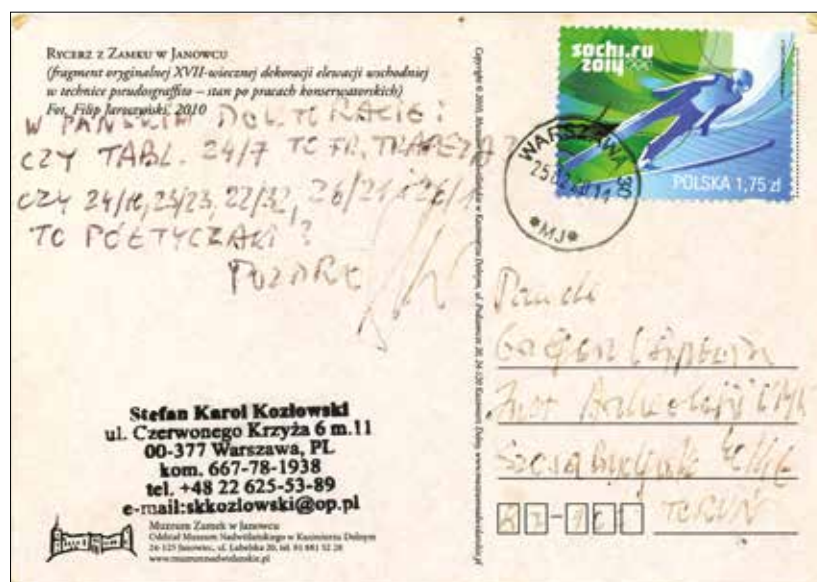 RYCERZ Z ZAMKU W JANOWCU
(fragment oryginalnej XVII-wiecznej dekoracji elewacji wschodniej
w technice pseudosgraffito – stan po pracach konserwatorskich)
Fot. Filip Jaroszyński, 2010
W PAŃSKIM DOKTORACIE:
CZY TABL. 24/7 TO FR. TRAPEZA?
CZY 24/18, 23/23, 22/32, 26/21
TO PÓŁTYCZAKI?
POZDR
Stefan Karol Kozłowski
ul. Czerwonego Krzyża 6 m.11
00-377 Warszawa, PL
kom. 667-78-1938
tel. +48 22 625-53-89
e-mail:skkozlowski@op.pl
Muzeum Zamek w Janowcu
Oddział Muzeum Nadwiślańskiego w Kazimierzu Dolnym
24-123 Janowiec, ul. Lubelska 20, tel. 81 881 52 28
www.muzeumnadwislanskie.pl
Copyright © 2010, Muzeum Nadwiślańskie w Kazimierzu Dolnym, ul. Podzamcze 20, 24-120 Kazimierz Dolny, www.muzeumnadwislanskie.pl
sochi.ru
2014
POLSKA 1,75 zł
WARSZAWA 30
25022014
*MJ*
Inst Archeologii UMK
Szosa Bydgoska
TORUŃ